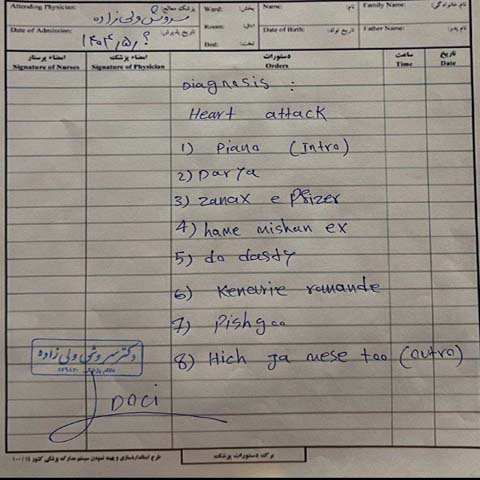 Attending Physician: پزشک معالج:
سروش ولی زاده
Ward: بخش:
Name: نام:
Family Name: نام خانوادگی:
Date of Admission: تاریخ پذیرش:
۱۴۰۴,۵,؟
Room: اتاق:
Bed: تخت:
Date of Birth: تاریخ تولد:
Father Name: نام پدر:
امضاء پرستار
Signature of Nurses
امضاء پزشک
Signature of Physician
دستورات
Orders
ساعت
Time
تاریخ
Date
Diagnosis :
Heart attack
1) Piano (Intro)
2) Darya
3) zanax e Pfizer
4) hame mishan ex
5) do dasty
6) Kenarie ranande
7) Pishgoo
8) Hich ja mese too (outro)
دکتر سروش ولی زاده
Daci
برگ دستورات پزشک
طرح استانداردسازی و بهینه نمودن سیستم مدارک پزشکی کشور